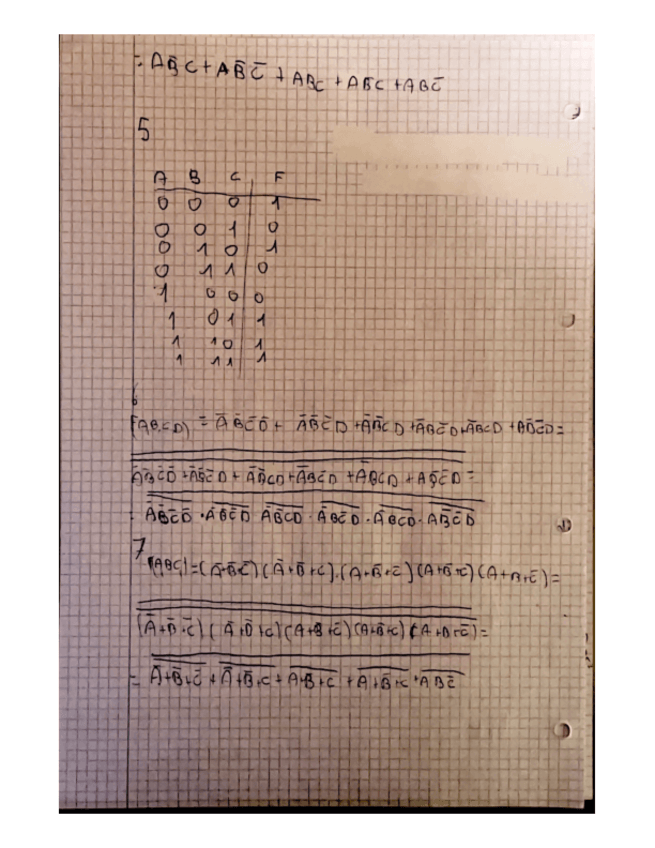 = AB̄C + AB̄C̄ + ABC + AB̄C + ABC̄
5
A B C F
0 0 0 1
0 0 1 0
0 1 0 1
0 1 1 0
1 0 0 0
1 0 1 1
1 1 0 1
1 1 1 1
6
F(AB,CD) = ĀB̄C̄D̄ + ĀB̄C̄D + ĀB̄CD + ĀBC̄D + ĀBCD + AB̄C̄D =
ĀB̄C̄D̄ + ĀB̄C̄D + ĀB̄CD + ĀBC̄D + ĀBCD + AB̄C̄D =
= ĀB̄C̄D̄ · ĀB̄C̄D ĀB̄CD · ĀBC̄D · ĀBCD · AB̄C̄D
7
F(ABC) = (Ā+B̄+C̄) (Ā+B̄+C) · (A+B̄+C̄) (A+B̄+C) (A+B+C̄) =
(Ā+B̄+C̄) (Ā+B̄+C) (A+B̄+C̄) (A+B̄+C) (A+B+C̄) =
= Ā+B̄+C̄ + Ā+B̄+C + A+B̄+C̄ + A+B̄+C + ABC̄